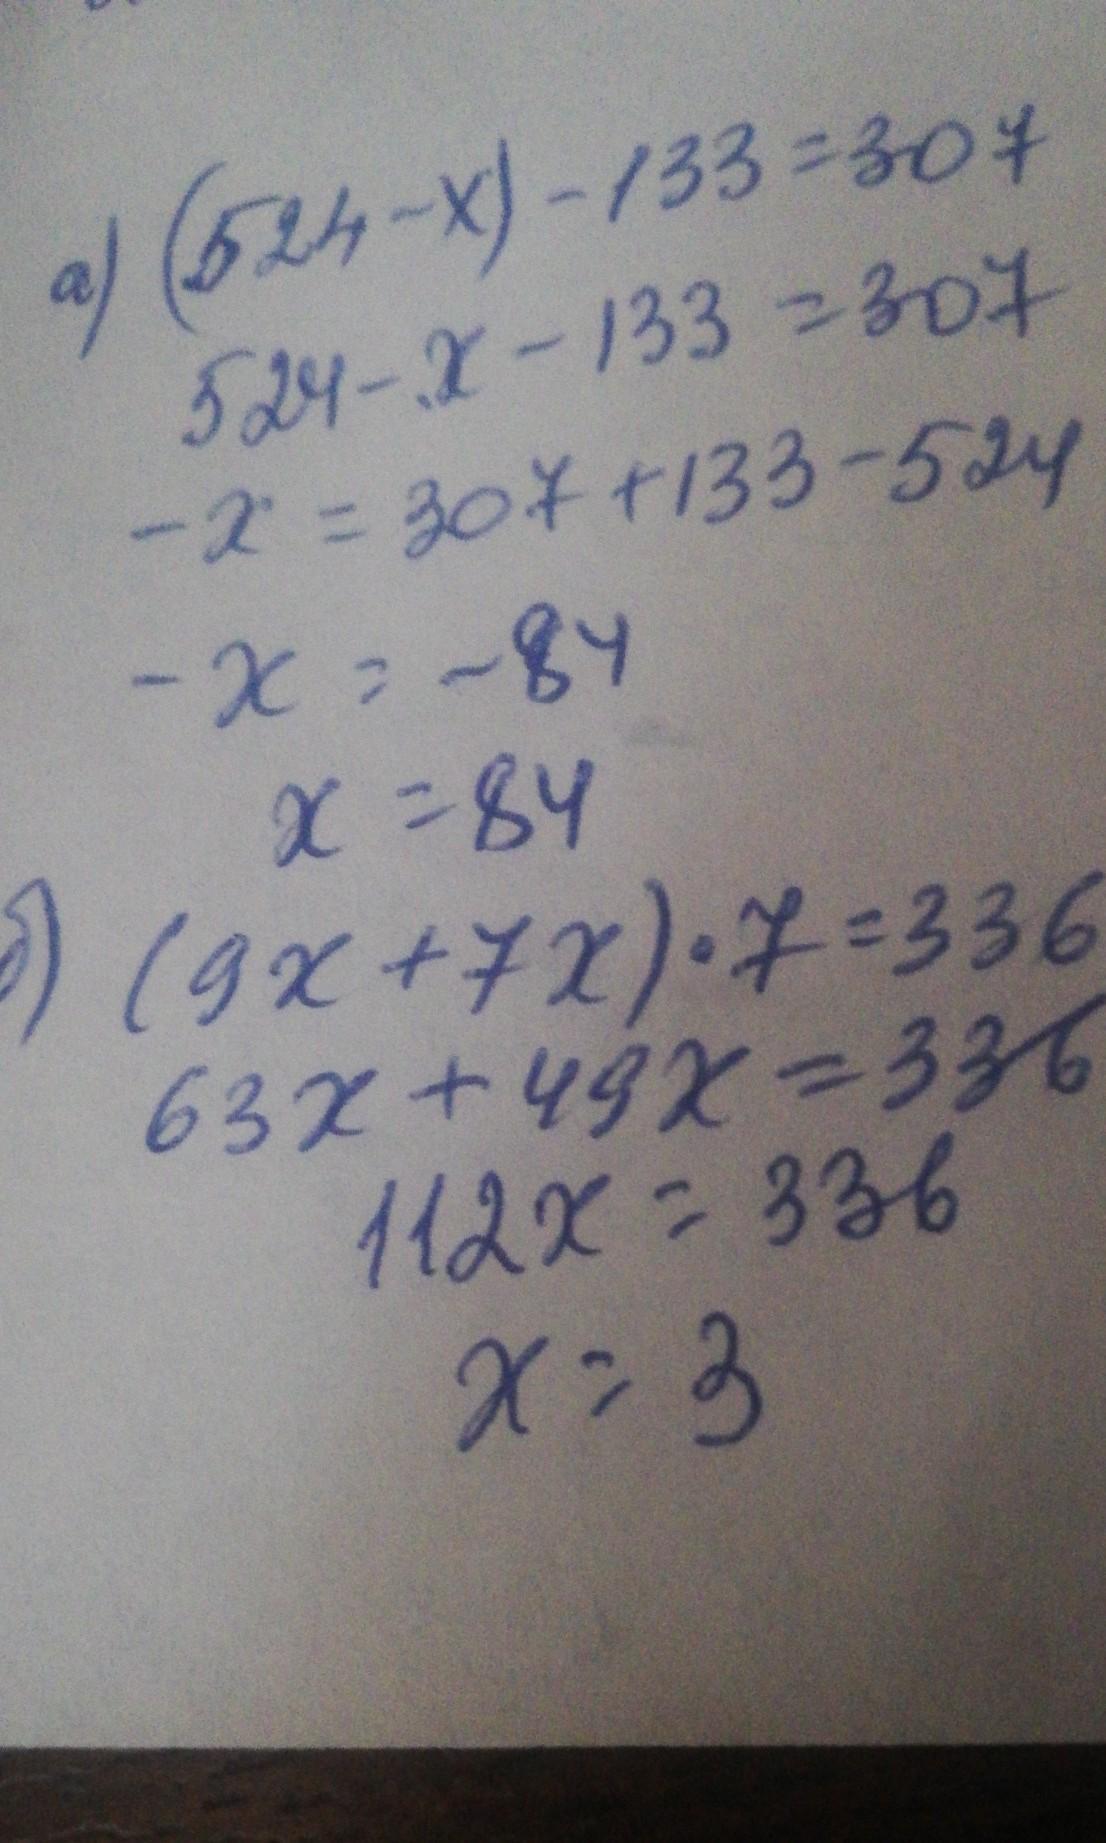 а) (524-x)-133=307
524-x-133=307
-x=307+133-524
-x=-84
x=84
б) (9x+7x)·7=336
63x+49x=336
112x=336
x=3